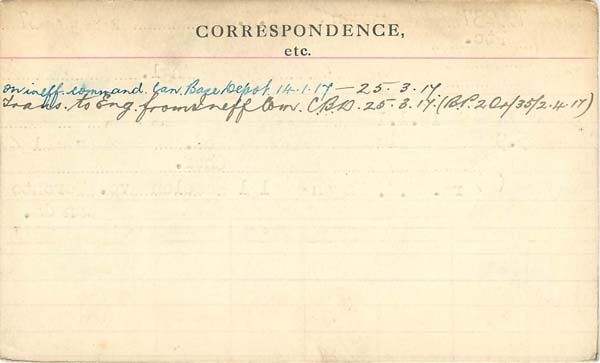 CORRESPONDENCE,
etc.
on ineff. command. Can. Base Depot 14.1.17 — 25.3.17.
Trans. to Eng. from ineff Com. C.B.D. 25.3.17. (B.P. 2 Or/35/2.4.17)